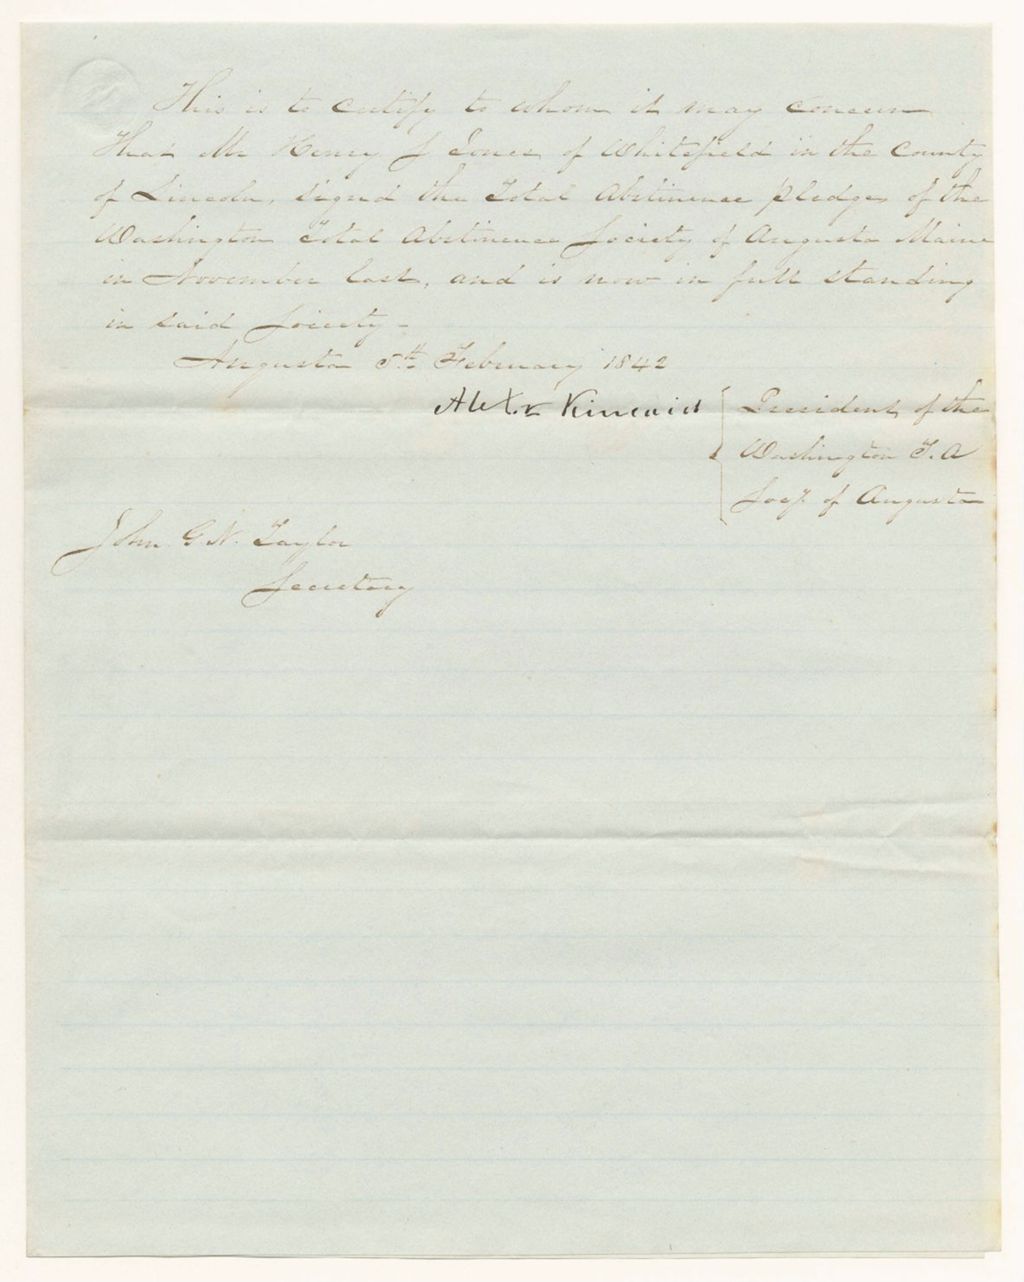 This is to certify to whom it may concern
that Mr Henry J Jones of Whitefield in the County
of Lincoln, signed the Total Abstinence pledges of the
Washington Total Abstinence Society of Augusta Maine
in November last, and is now in full standing
in said Society –
Augusta 5th February 1842
Alexr Kincaid President of the
Washington T. A
Socy. of Augusta
John G. N. Taylor
Secretary